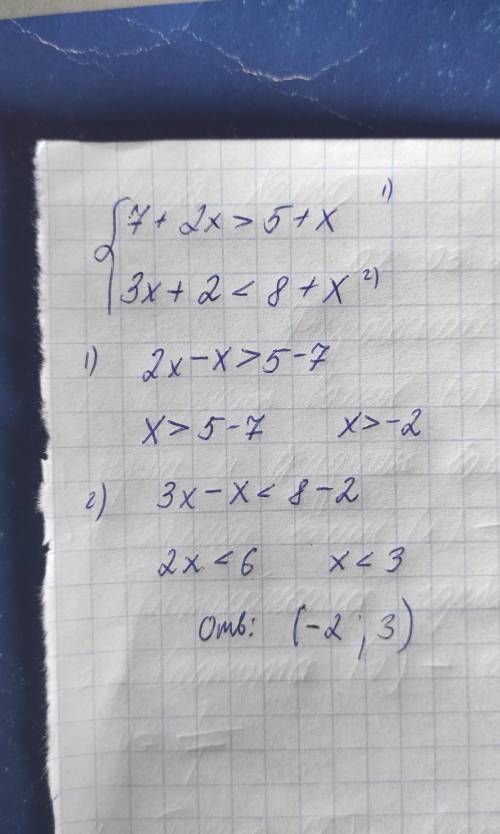 7 + 2x > 5 + x 1)
3x + 2 < 8 + x 2)
1) 2x - x > 5 - 7
x > 5 - 7 x > -2
2) 3x - x < 8 - 2
2x < 6 x < 3
Отв: (-2 ; 3)